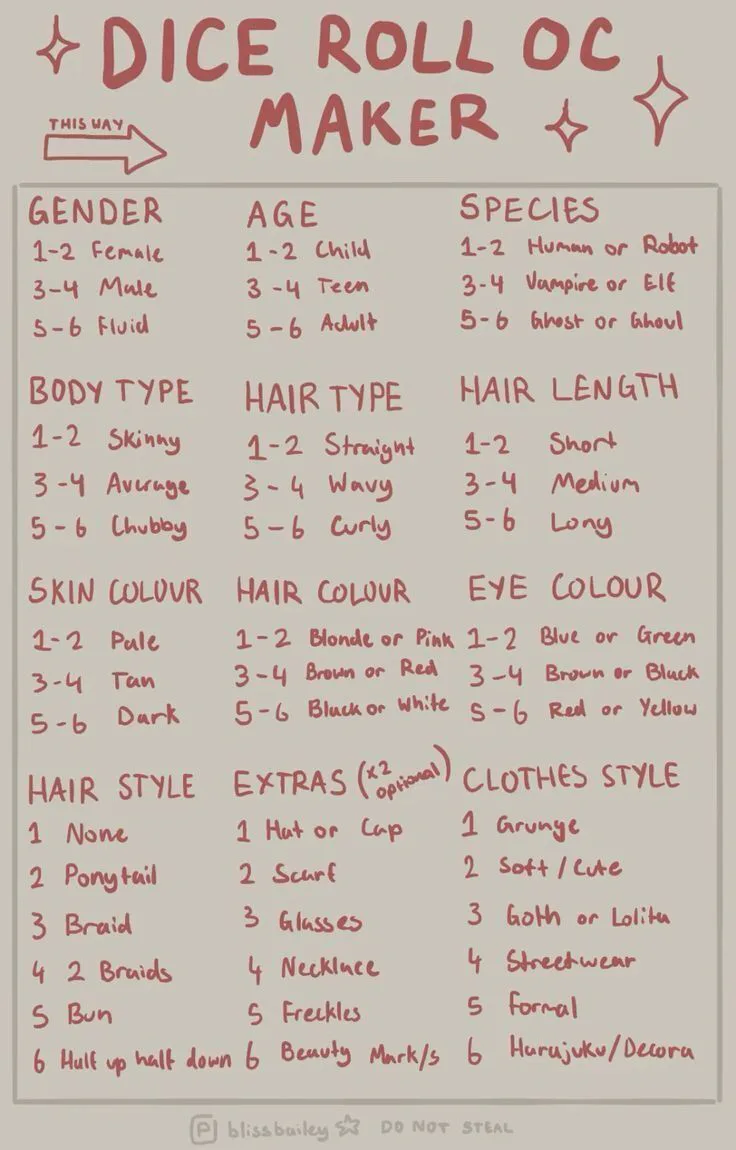 DICE ROLL OC
MAKER
THIS WAY
GENDER
1-2 Female
3-4 Male
5-6 Fluid
AGE
1-2 Child
3-4 Teen
5-6 Adult
SPECIES
1-2 Human or Robot
3-4 Vampire or Elf
5-6 Ghost or Ghoul
BODY TYPE
1-2 Skinny
3-4 Average
5-6 Chubby
HAIR TYPE
1-2 Straight
3-4 Wavy
5-6 Curly
HAIR LENGTH
1-2 Short
3-4 Medium
5-6 Long
SKIN COLOUR
1-2 Pale
3-4 Tan
5-6 Dark
HAIR COLOUR
1-2 Blonde or Pink
3-4 Brown or Red
5-6 Black or White
EYE COLOUR
1-2 Blue or Green
3-4 Brown or Black
5-6 Red or Yellow
HAIR STYLE
1 None
2 Ponytail
3 Braid
4 2 Braids
5 Bun
6 Half up half down
EXTRAS (x2 optional)
1 Hat or Cap
2 Scarf
3 Glasses
4 Necklace
5 Freckles
6 Beauty Mark/s
CLOTHES STYLE
1 Grunge
2 Soft/Cute
3 Goth or Lolita
4 Streetwear
5 Formal
6 Harajuku/Decora
P blissbailey DO NOT STEAL